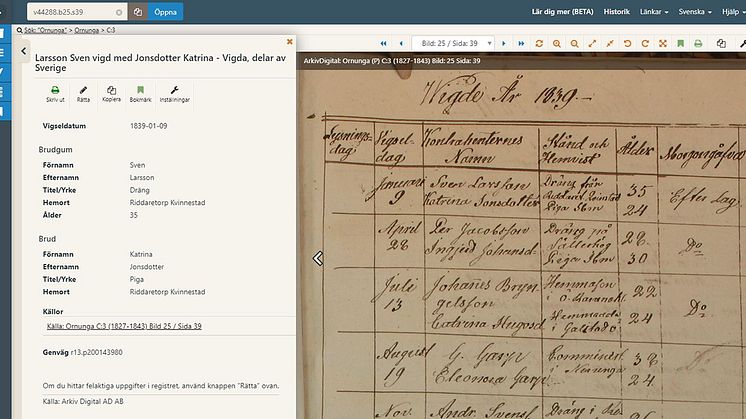 v44288.b25.s39
Öppna
Lär dig mer (BETA) Historik Länkar Svenska Hjälp
Sök: "Ornunga" > Ornunga > C:3
Larsson Sven vigd med Jonsdotter Katrina - Vigda, delar av
Sverige
Skriv ut Rätta Kopiera Bokmärk Inställningar
Vigseldatum 1839-01-09
Brudgum
Förnamn Sven
Efternamn Larsson
Titel/Yrke Dräng
Hemort Riddaretorp Kvinnestad
Ålder 35
Brud
Förnamn Katrina
Efternamn Jonsdotter
Titel/Yrke Piga
Hemort Riddaretorp Kvinnestad
Källor
Källa: Ornunga C:3 (1827-1843) Bild 25 / Sida 39
Genväg r13.p200143980
Om du hittar felaktiga uppgifter i registret, använd knappen "Rätta" ovan.
Källa: Arkiv Digital AD AB
Bild: 25 / Sida: 39
ArkivDigital: Ornunga (P) C:3 (1827-1843) Bild: 25 Sida: 39
Wigde År 1839.-
Lysnings- Vigsel- Kontrahenternes Stånd och Ålder Morgongåfva
dag dag Namn Hemvist
Januari Sven Larsson Dräng från 35 Efter lag
9 Katrina Jonsdotter Piga Ibm 24
April Per Jacobsson Dräng på 28 Do
28 Ingjerd Johansd. Piga Ibm 30
Juli Johanis Bryn Hemmason 22 Do
13 gelsson i
Catrina Hugosd Hemmad. i 24
August G. i 38 Do
19 Eleonora 24
Nov. Andr. Dräng i